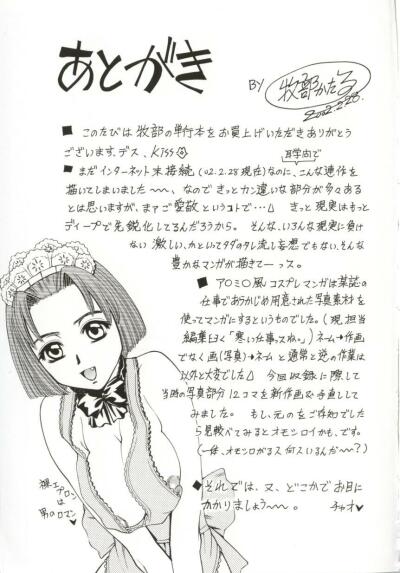 あとがき
BY 牧部かたる
2002.2.28.
■このたびは牧部の単行本をお買上げいただきありがとう
ございます、デス、KISS
耳学問で
■まだインターネット未接続(02.2.28現在)なのに、こんな連作を
描いてしまいました〜〜、なので きっとカン違いな部分が多々ある
とは思いますが、まァご愛敬というコトで…△ きっと現実はもっと
ディープで先鋭化してるんだろうから。そんな、いろんな現実に負け
ない 激しい、かといってタダのタレ流し妄想でもない、そんな
豊かなマンガが描きてーっス。
■アロミロ風コスプレマンガは某誌の
仕事であらかじめ用意された写真素材を
使ってマンガにするというものでした。(現、担当
編集曰く「寒い仕事っスね。」)ネーム→作画
でなく画(写真)→ネームと通常と逆の作業は
以外と大変でした△ 今回収録に際して
当時の写真部分12コマを新作画&手直しして
みました。もし、元のをご存知でした
ら見較べてみるとオモシロイかも、です。
(一体、オモシロがるス何スいるんだ〜〜?)
■それでは、又、どこかでお目に
かかりましょう〜〜。 チャオ♥
裸エプロン
は
男のロマン♥